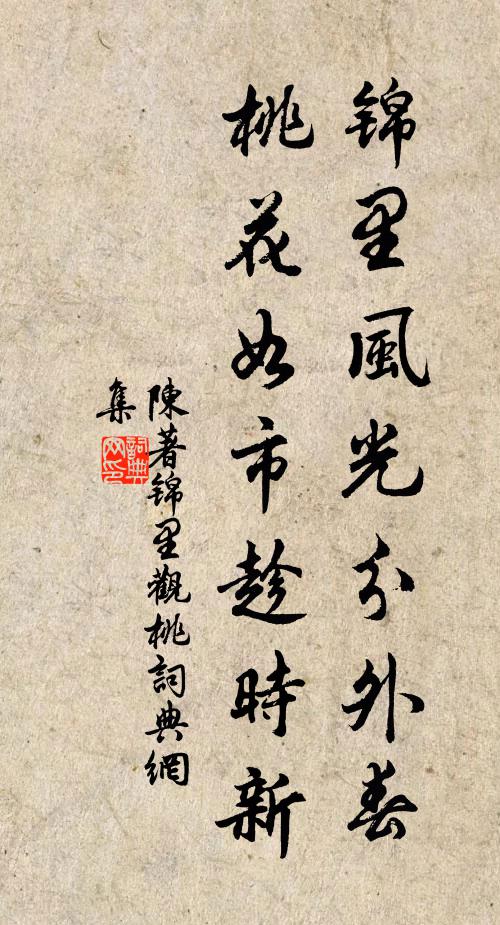 錦里風光分外春
桃花如市趁時新
陳著錦里觀桃詞典網
集
詞典網印